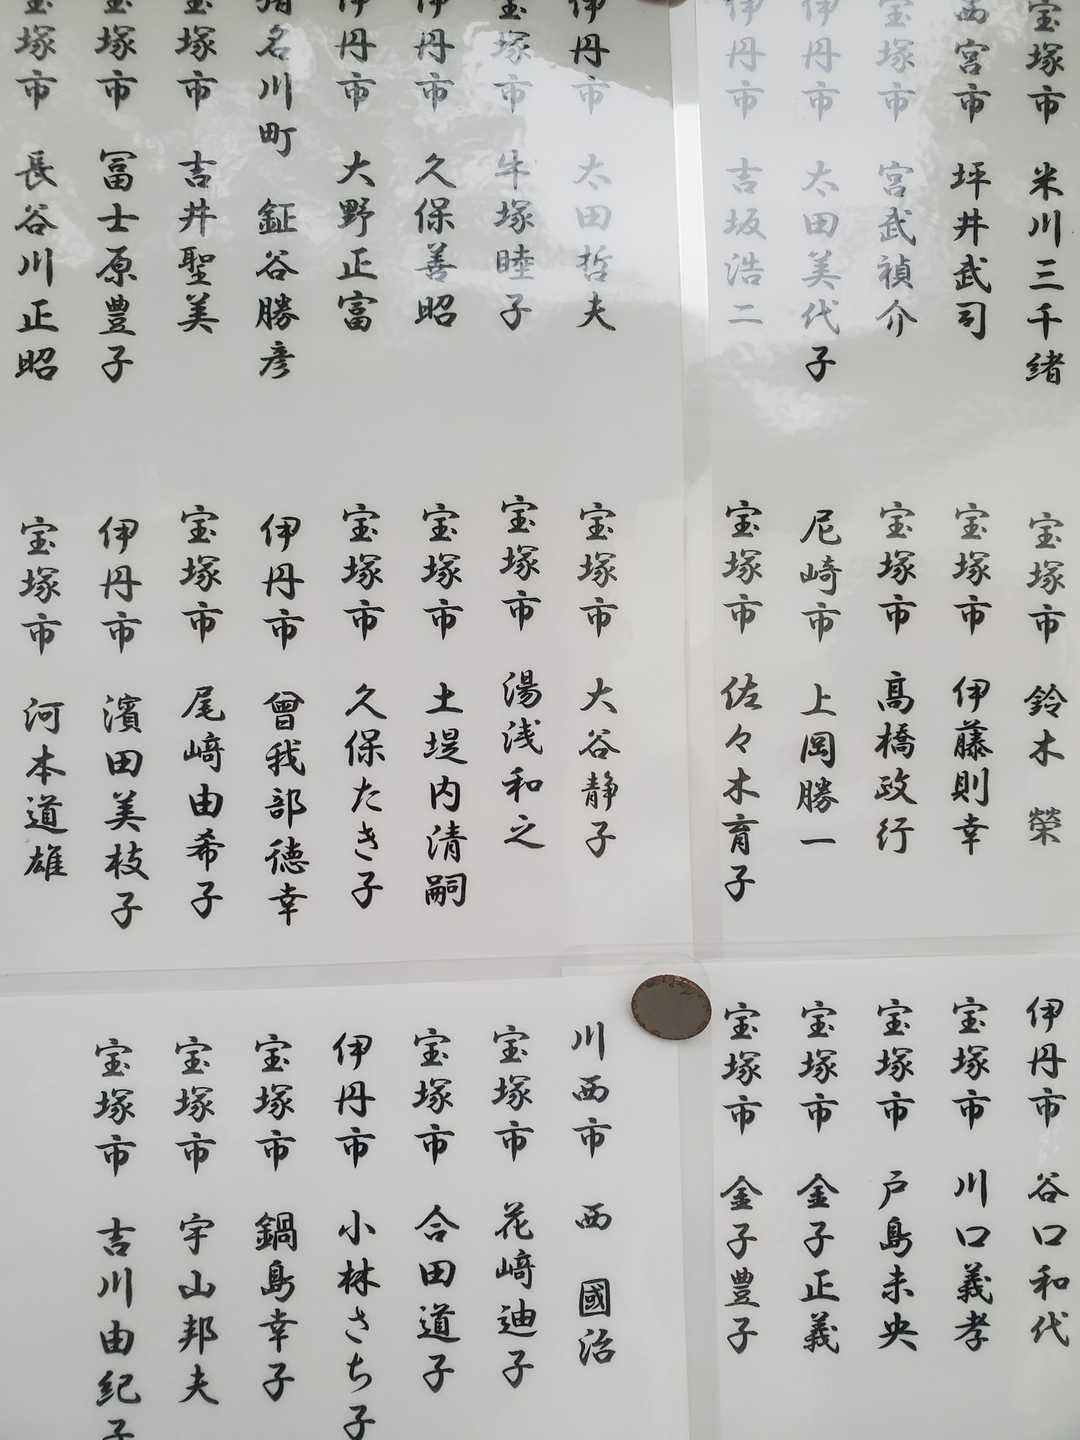 宝塚市 米川三千緒
西宮市 坪井武司
宝塚市 宮武禎介
伊丹市 太田美代子
伊丹市 吉坂浩二
宝塚市 鈴木 榮
宝塚市 伊藤則幸
宝塚市 髙橋政行
尼崎市 上岡勝一
宝塚市 佐々木育子
伊丹市 太田哲夫
宝塚市 牛塚睦子
伊丹市 久保善昭
伊丹市 大野正富
猪名川町 鉦谷勝彦
宝塚市 吉井聖美
宝塚市 冨士原豊子
宝塚市 長谷川正昭
宝塚市 大谷静子
宝塚市 湯浅和之
宝塚市 土堤内清嗣
宝塚市 久保たき子
伊丹市 曾我部徳幸
宝塚市 尾﨑由希子
伊丹市 濱田美枝子
宝塚市 河本道雄
伊丹市 谷口和代
宝塚市 川口義孝
宝塚市 戸島未央
宝塚市 金子正義
宝塚市 金子豊子
川西市 西 國治
宝塚市 花﨑迪子
宝塚市 合田道子
伊丹市 小林さち子
宝塚市 鍋島幸子
宝塚市 宇山邦夫
宝塚市 吉川由紀子